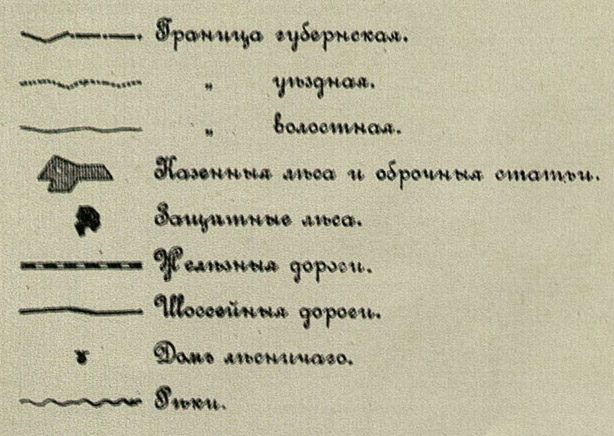 Граница губернская.
„ уѣздная.
„ волостная.
Казенныя лѣса и оброчныя статьи.
Защитные лѣса.
Желѣзныя дороги.
Шоссейныя дороги.
Домъ лѣсничаго.
Рѣки.